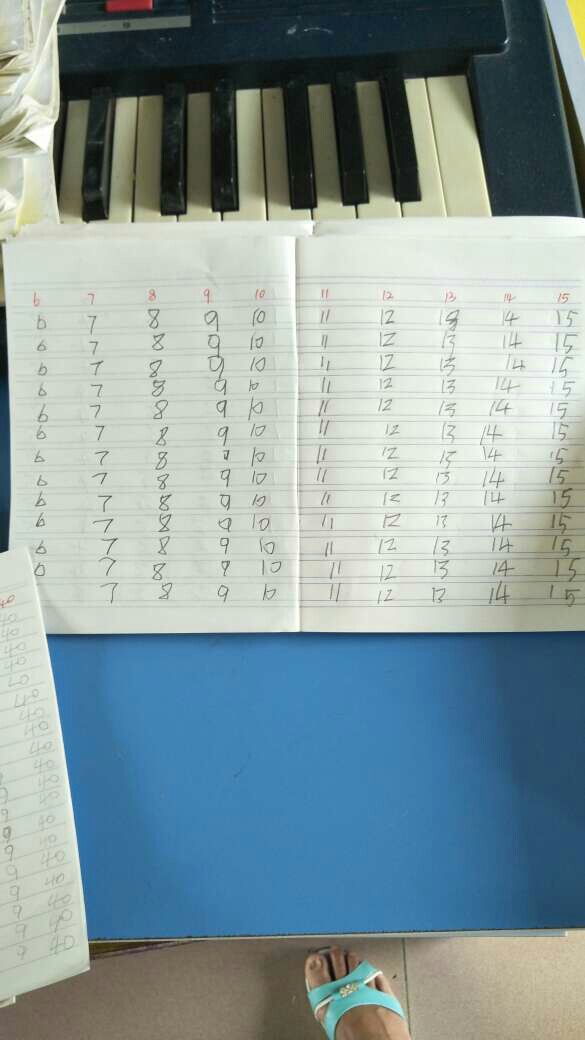 6 7 8 9 10 11 12 13 14 15
6 7 8 9 10 11 12 13 14 15
6 7 8 9 10 11 12 13 14 15
6 7 8 9 10 11 12 13 14 15
6 7 8 9 10 11 12 13 14 15
6 7 8 9 10 11 12 13 14 15
6 7 8 9 10 11 12 13 14 15
6 7 8 9 10 11 12 13 14 15
6 7 8 9 10 11 12 13 14 15
6 7 8 9 10 11 12 13 14 15
6 7 8 9 10 11 12 13 14 15
6 7 8 9 10 11 12 13 14 15
6 7 8 9 10 11 12 13 14 15
7 8 9 10 11 12 13 14 15
40
40
40
40
40
40
40
40
40
40
40
9 40
9 40
9 40
9 40
9 40
9 40
9 40
9 40
9 40